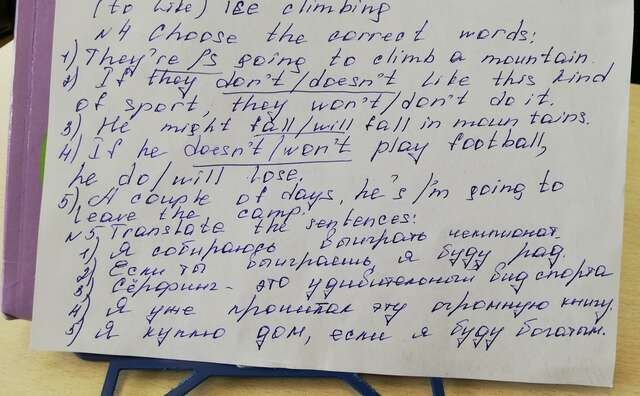 (to like) ice climbing
N4 Choose the correct words:
1) They're/'s going to climb a mountain.
2) If they don't/doesn't like this kind
of sport, they won't/don't do it.
3) He might fall/will fall in mountains.
4) If he doesn't/won't play football,
he do/will lose.
5) A couple of days, he's/'m going to
leave the camp.
N5 Translate the sentences:
1) Я собираюсь выиграть чемпионат.
2) Если ты выиграешь, я буду рад.
3) Сёрфинг - это удивительный вид спорта
4) Я уже прочитал эту огромную книгу.
5) Я куплю дом, если я буду богатым.